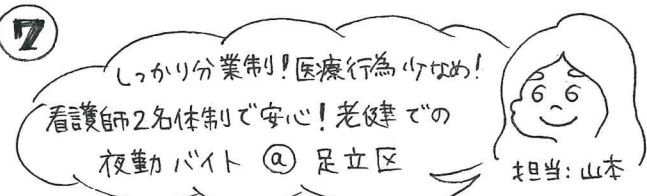 7
しっかり分業制！医療行為少なめ！
看護師2名体制で安心！老健での
夜勤バイト @ 足立区
担当：山本